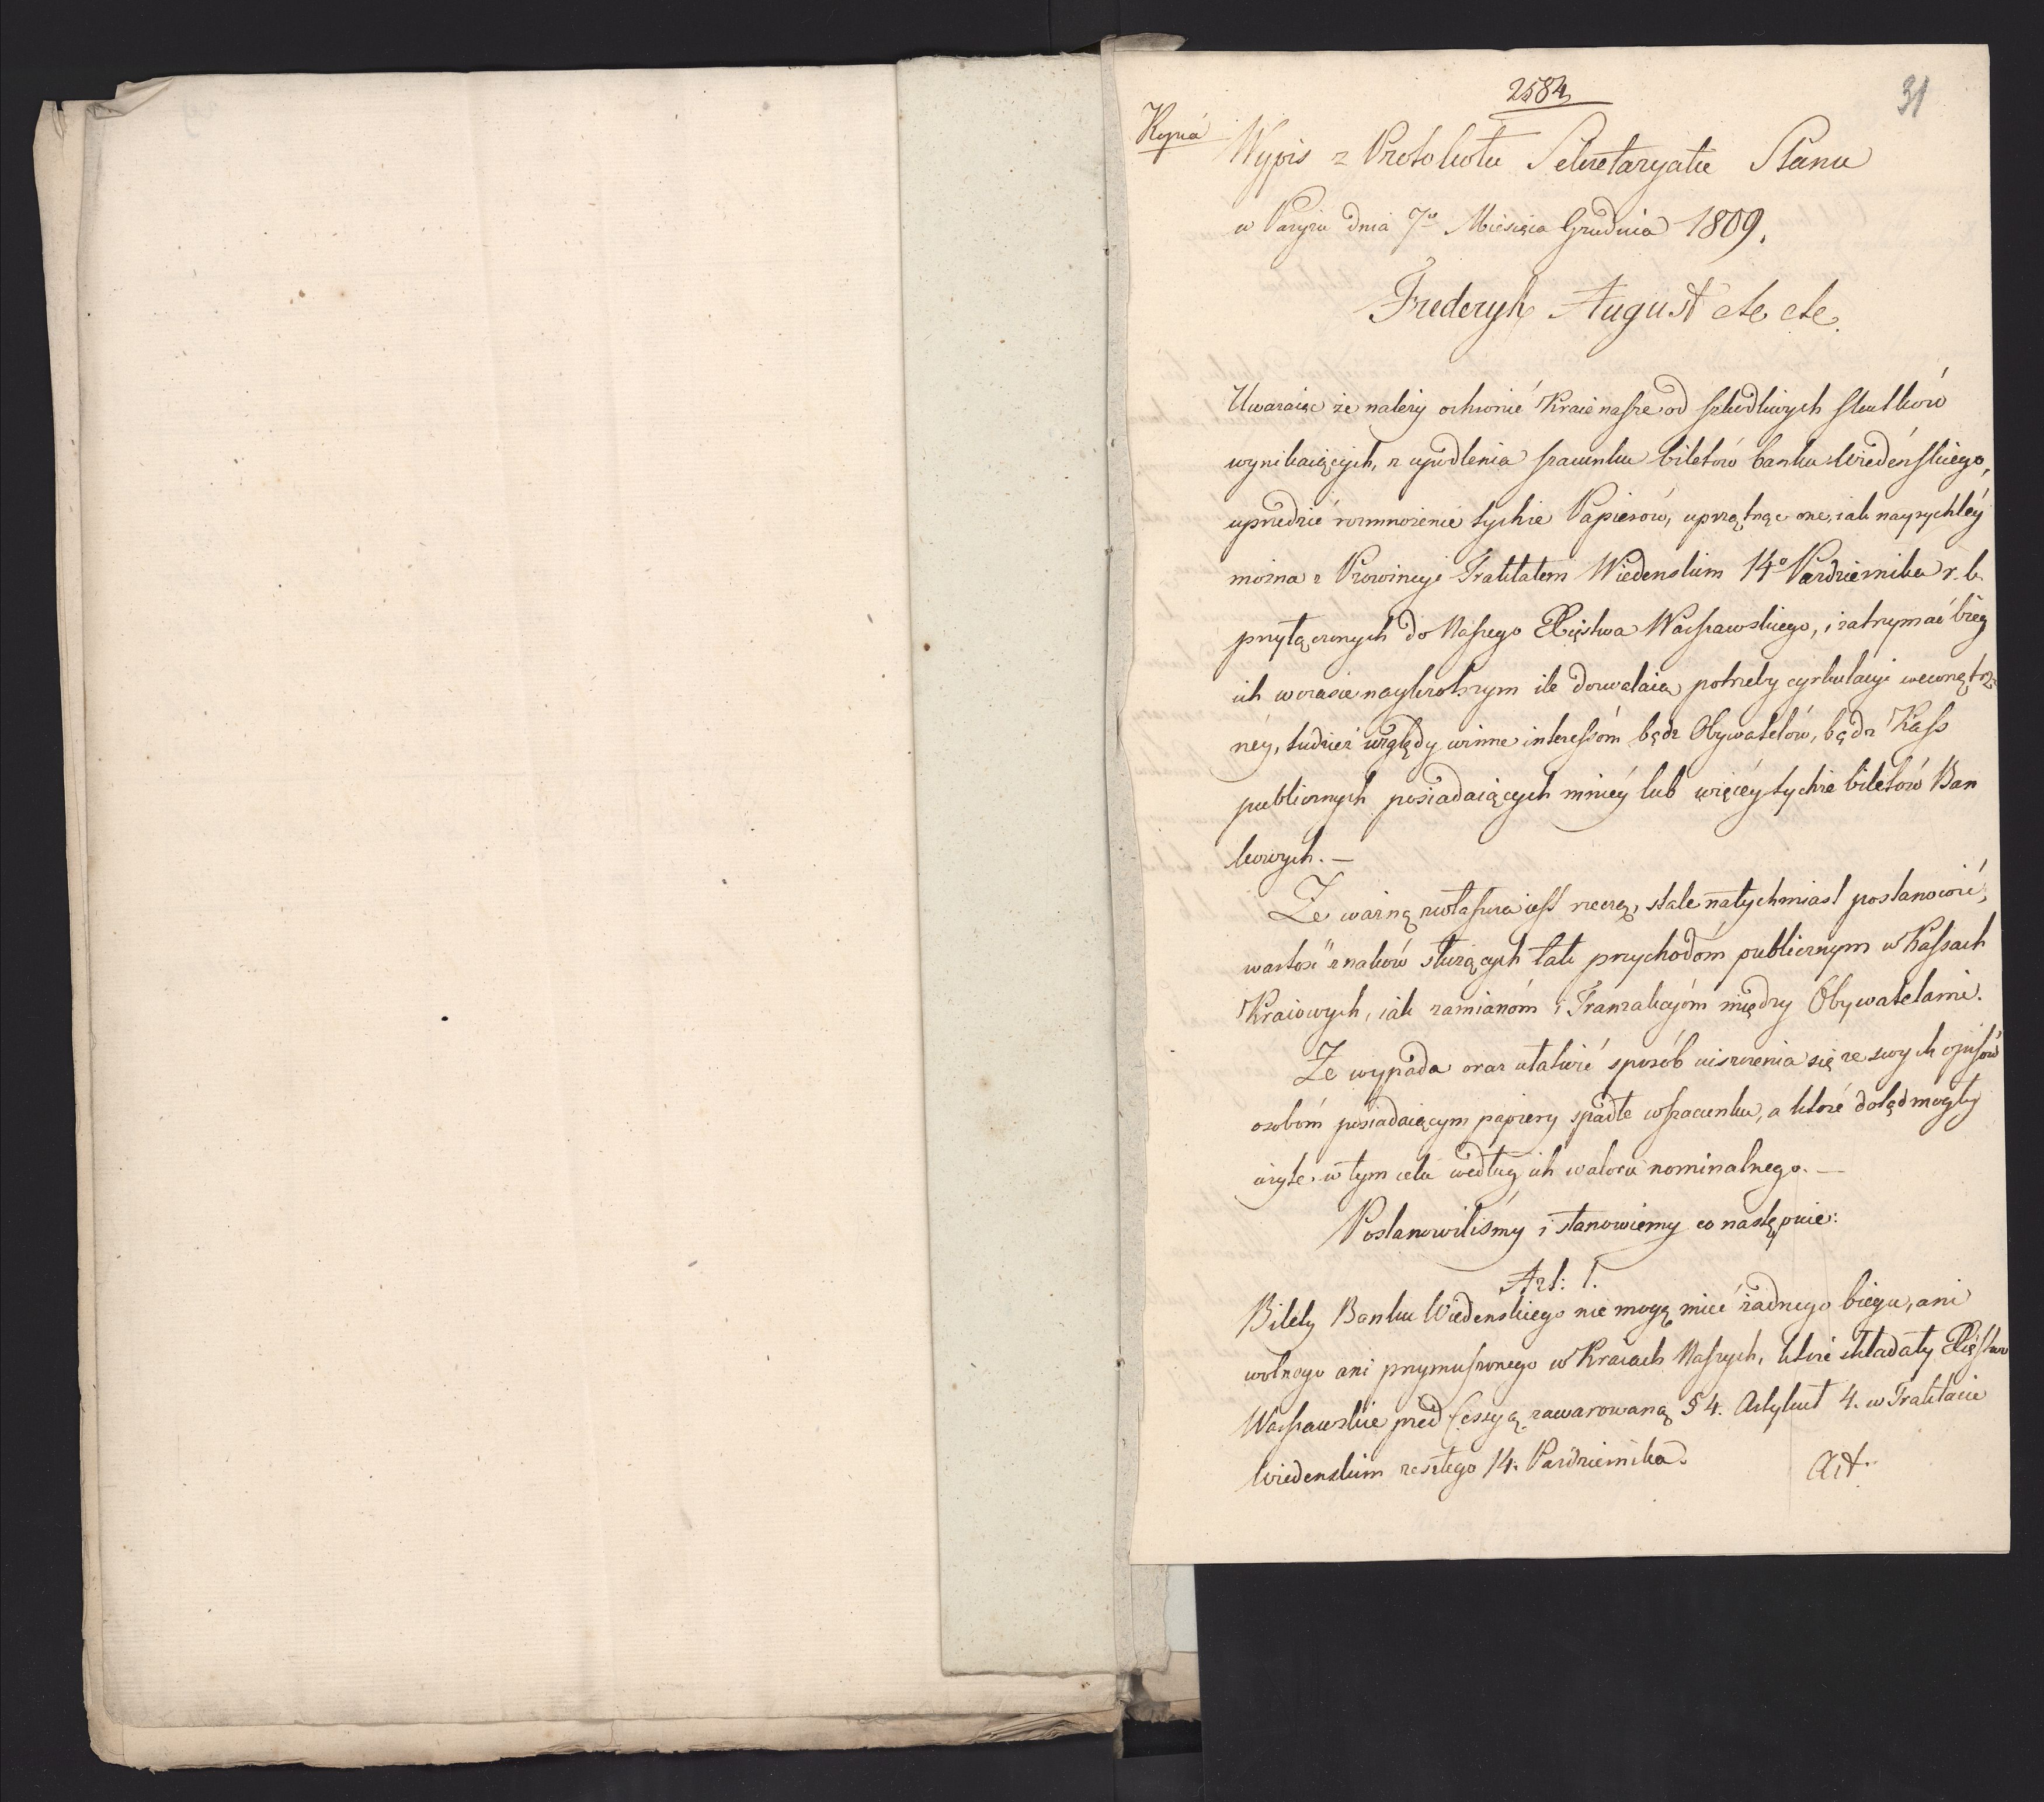 2584
31
Kopia
Wypis z Protokołu Sekretaryatu Stanu
w Paryżu dnia 7º Miesiąca Grudnia 1809.
Frederyk August etc etc.
Uważaiąc że należy ochronić Kraie nasze od szkodliwych skutków
wynikaiących, z upodlenia szacunku biletów banku Wiedeńskiego,
uprzedzić rozmnożenie tychże Papierów, uprzątnąć one, iak nayrychléy
można z Prowincyi Traktatem Wiedenskim 14º Pazdziernika r. b.
przyłączonych do Naszego Xięstwa Warszawskiego, i zatrzymać bieg
ich w czasie naykrotszym ile dozwalaią potrzeby cyrkulacyi wewnętrz
néy, tudzież względy winne interessóm bądz Obywatelów, bądz Kass
publicznych posiadaiących mniéy lub więcéy tychże biletów Ban
kowych. —
Że ważną zwłaszcza iest rzeczą, stale natychmiast postanowić,
wartość znaków służących tak przychodóm publicznym w Kassach
Kraiowych, iak zamianóm i Tranzakcyóm między Obywatelami.
Że wypada oraz ułatwić sposób uiszczenia się ze swych opisów
osobóm posiadaiącym papiery spadłe w szacunku, a które dotąd mogły
użyte w tym celu według ich waloru nominalnego. —
Postanowiliśmy i stanowiemy co następuie:
Art: 1.
Bilety Banku Wiedenskiego nie mogą mieć żadnego biegu, ani
wolnego ani przymuszonego w Kraiach Naszych, które składały Xięstwo
Warszawskie przed Cessyą zawarowaną § 4. Artykuł 4. w Traktacie
Wiedenskim zeszłego 14. Pazdziernika.
Art.